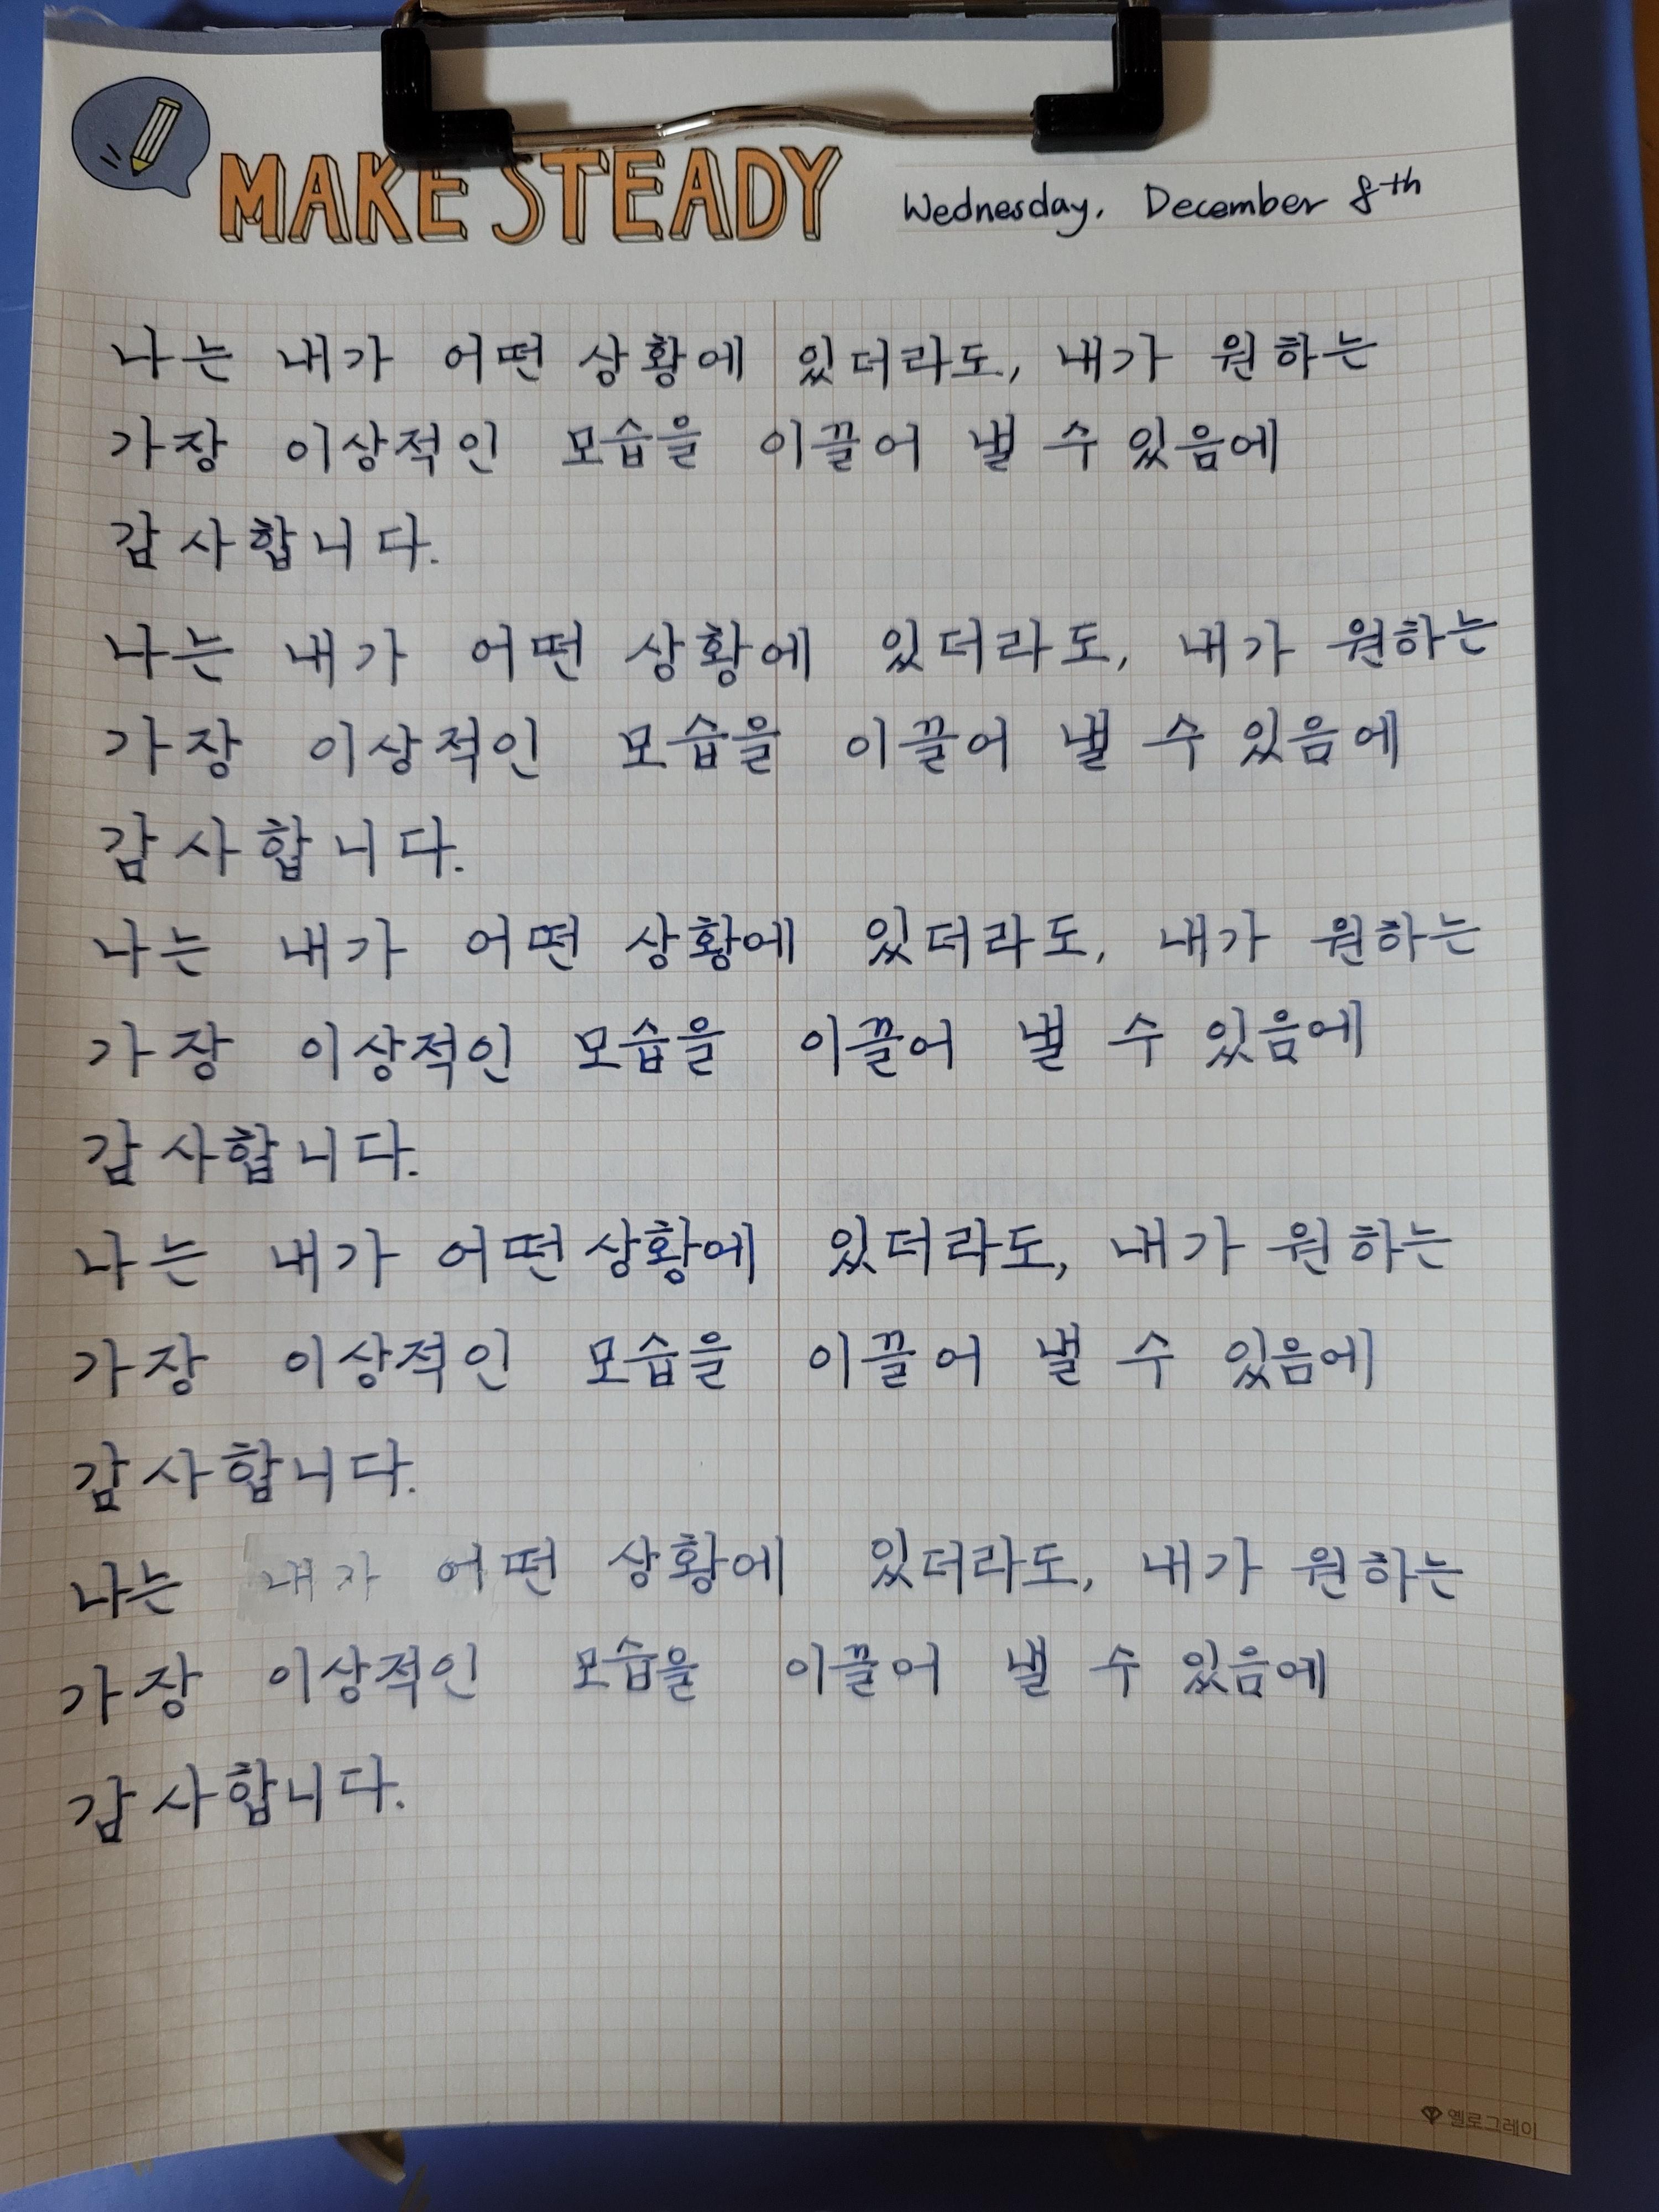 MAKE STEADY
Wednesday, December 8th
나는 내가 어떤 상황에 있더라도, 내가 원하는
가장 이상적인 모습을 이끌어 낼 수 있음에
감사합니다.
나는 내가 어떤 상황에 있더라도, 내가 원하는
가장 이상적인 모습을 이끌어 낼 수 있음에
감사합니다.
나는 내가 어떤 상황에 있더라도, 내가 원하는
가장 이상적인 모습을 이끌어 낼 수 있음에
감사합니다.
나는 내가 어떤 상황에 있더라도, 내가 원하는
가장 이상적인 모습을 이끌어 낼 수 있음에
감사합니다.
나는 내가 어떤 상황에 있더라도, 내가 원하는
가장 이상적인 모습을 이끌어 낼 수 있음에
감사합니다.
옐로그레이